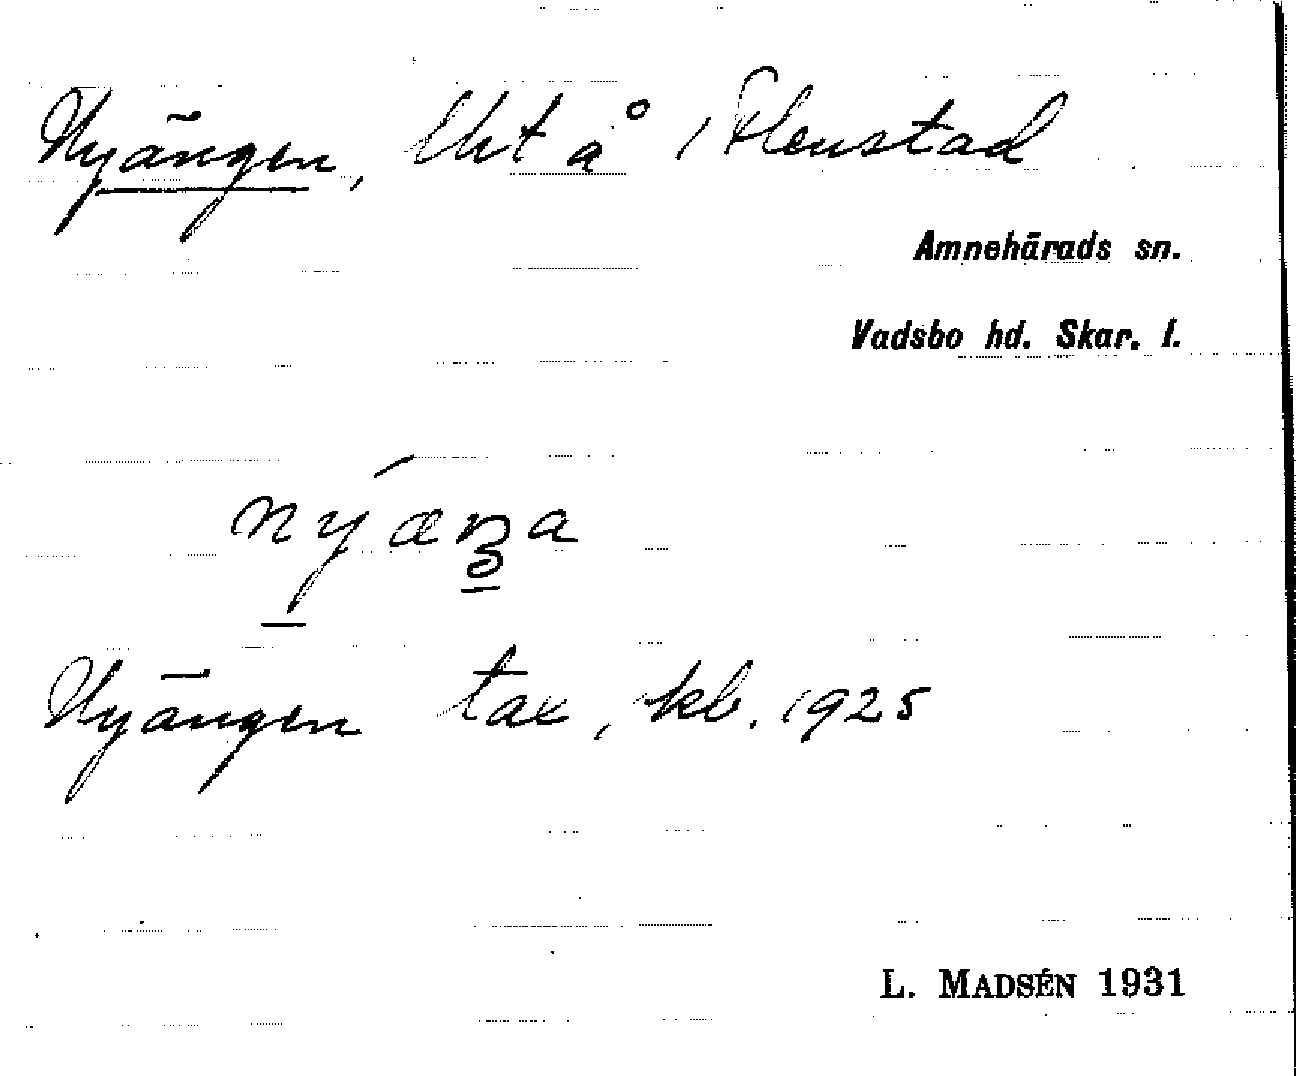 Nyängen, lht å i Flenstad
Amnehärads sn.
Vadsbo hd. Skar. l.
nýæŋa
Nyängen tax, kb. 1925
L. MADSÉN 1931